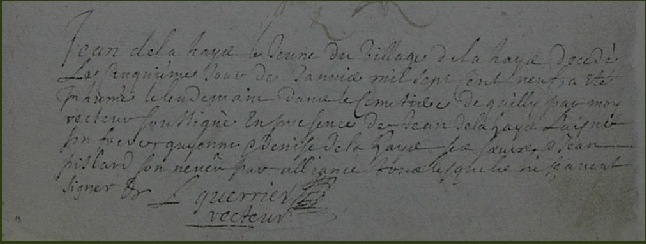 Jean de la haye le Jeune du village de la haye decedé
Le cinquiéme Jour de Janvie mil sept cent neuf a eté
Inhumé le lendemain dans le Cemetiere de quilly par moy
recteur soussigné En presence de Jean de la haye L'aisné
son frere guyonne & Denise de la haye ses sœurs & Jean
pillard son neveu par alliance tous lesquels ne sçavent
signer &
L guerrier
recteur